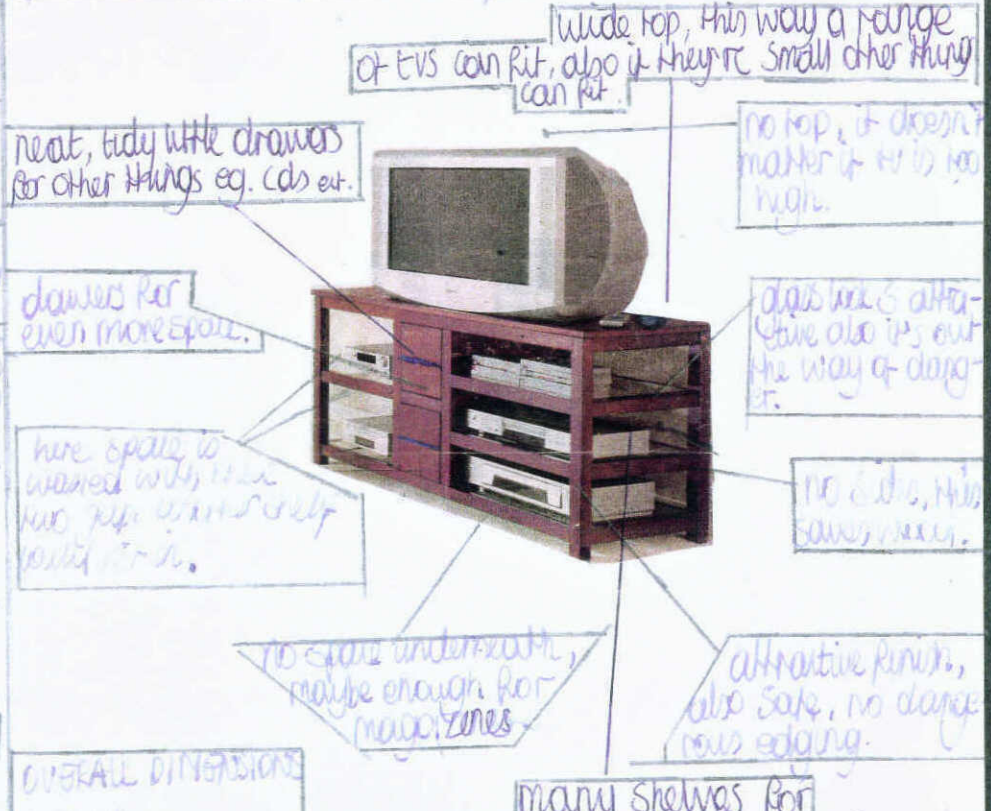 wide top, this way a range
of tvs can fit, also if they're small other things
can fit.
no top, it doesn't
matter if tv is too
high.
neat, tidy little drawers
for other things eg. cds ect.
drawers for
even more space.
glass look is attra-
ctive also it's out
the way of dang-
er.
here space is
wasted with
two
no sides, this
saves
no space underneath,
maybe enough for
magazines.
attractive finish,
also safe, no dange
rous edging.
OVERALL DIMENSIONS
many shelves for